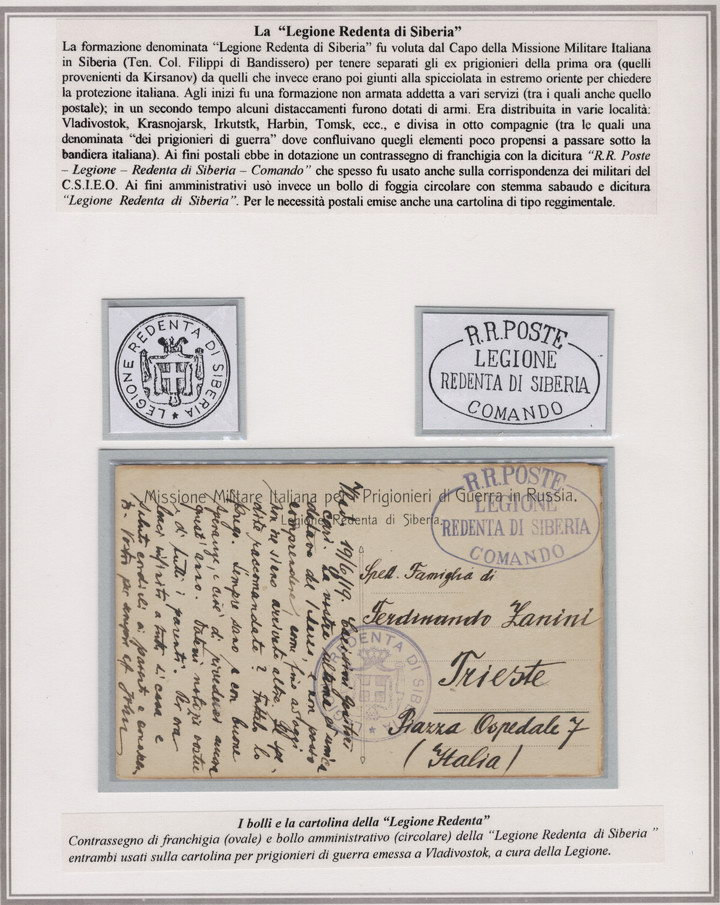 La “Legione Redenta di Siberia”
La formazione denominata “Legione Redenta di Siberia” fu voluta dal Capo della Missione Militare Italiana
in Siberia (Ten. Col. Filippi di Bandissero) per tenere separati gli ex prigionieri della prima ora (quelli
provenienti da Kirsanov) da quelli che invece erano poi giunti alla spicciolata in estremo oriente per chiedere
la protezione italiana. Agli inizi fu una formazione non armata addetta a vari servizi (tra i quali anche quello
postale); in un secondo tempo alcuni distaccamenti furono dotati di armi. Era distribuita in varie località:
Vladivostok, Krasnojarsk, Irkutstk, Harbin, Tomsk, ecc., e divisa in otto compagnie (tra le quali una
denominata “dei prigionieri di guerra” dove confluivano quegli elementi poco propensi a passare sotto la
bandiera italiana). Ai fini postali ebbe in dotazione un contrassegno di franchigia con la dicitura “R.R. Poste
– Legione – Redenta di Siberia – Comando” che spesso fu usato anche sulla corrispondenza dei militari del
C.S.I.E.O. Ai fini amministrativi usò invece un bollo di foggia circolare con stemma sabaudo e dicitura
“Legione Redenta di Siberia”. Per le necessità postali emise anche una cartolina di tipo reggimentale.
LEGIONE REDENTA DI SIBERIA
R.R.POSTE
LEGIONE
REDENTA DI SIBERIA
COMANDO
Missione Militare Italiana per i Prigionieri di Guerra in Russia.
Legione Redenta di Siberia.
R.R.POSTE
LEGIONE
REDENTA DI SIBERIA
COMANDO
19/6/19. Carissimi genitori
cari. La vostra ultima ed unica
datava del
comprendere, come fino ad oggi
non ne siano arrivate altre.
dite raccomandate? Fatelo lo
prego. Sempre sano e con buone
speranze, e cioè di rivederci ancor
quest'anno. Datemi notizie vostre
e di tutti i parenti. Per ora
baci infiniti a tutti di casa e
saluti cordiali ai parenti e
Vostro per sempre
REDENTA DI SIBERIA
Spett. Famiglia di
Ferdinando Zanini
Trieste
Piazza Ospedale 7
(Italia)
I bolli e la cartolina della “Legione Redenta”
Contrassegno di franchigia (ovale) e bollo amministrativo (circolare) della “Legione Redenta di Siberia ”
entrambi usati sulla cartolina per prigionieri di guerra emessa a Vladivostok, a cura della Legione.